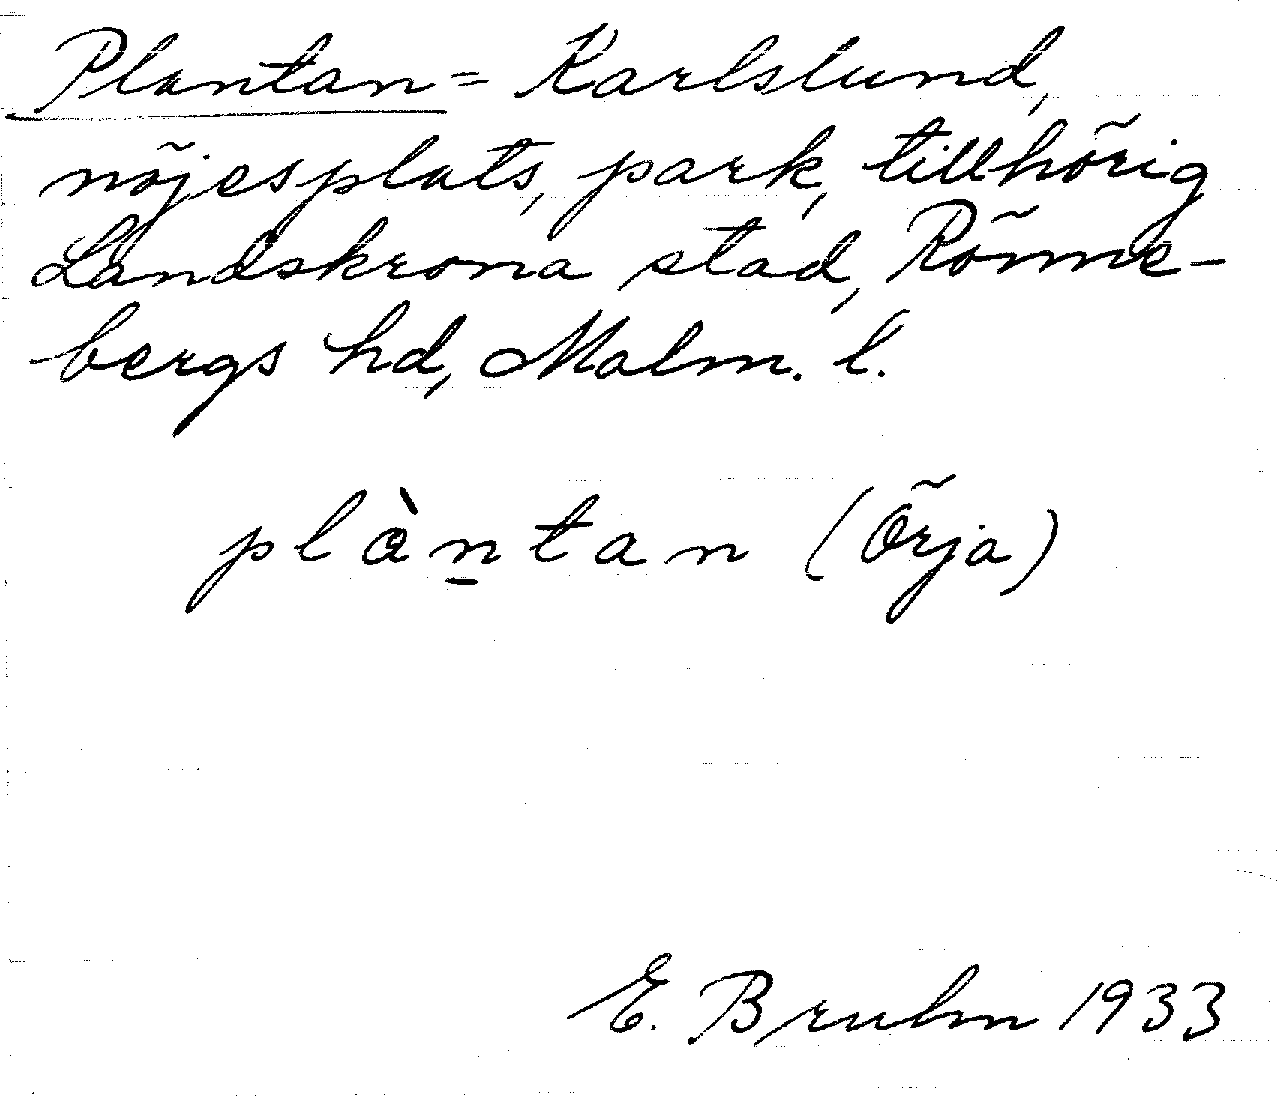 Plantan = Karlslund,
nöjesplats, park, tillhörig
Landskrona stad, Rönne-
bergs hd, Malm. l.
plàṉtan (Örja)
E. Bruhn 1933